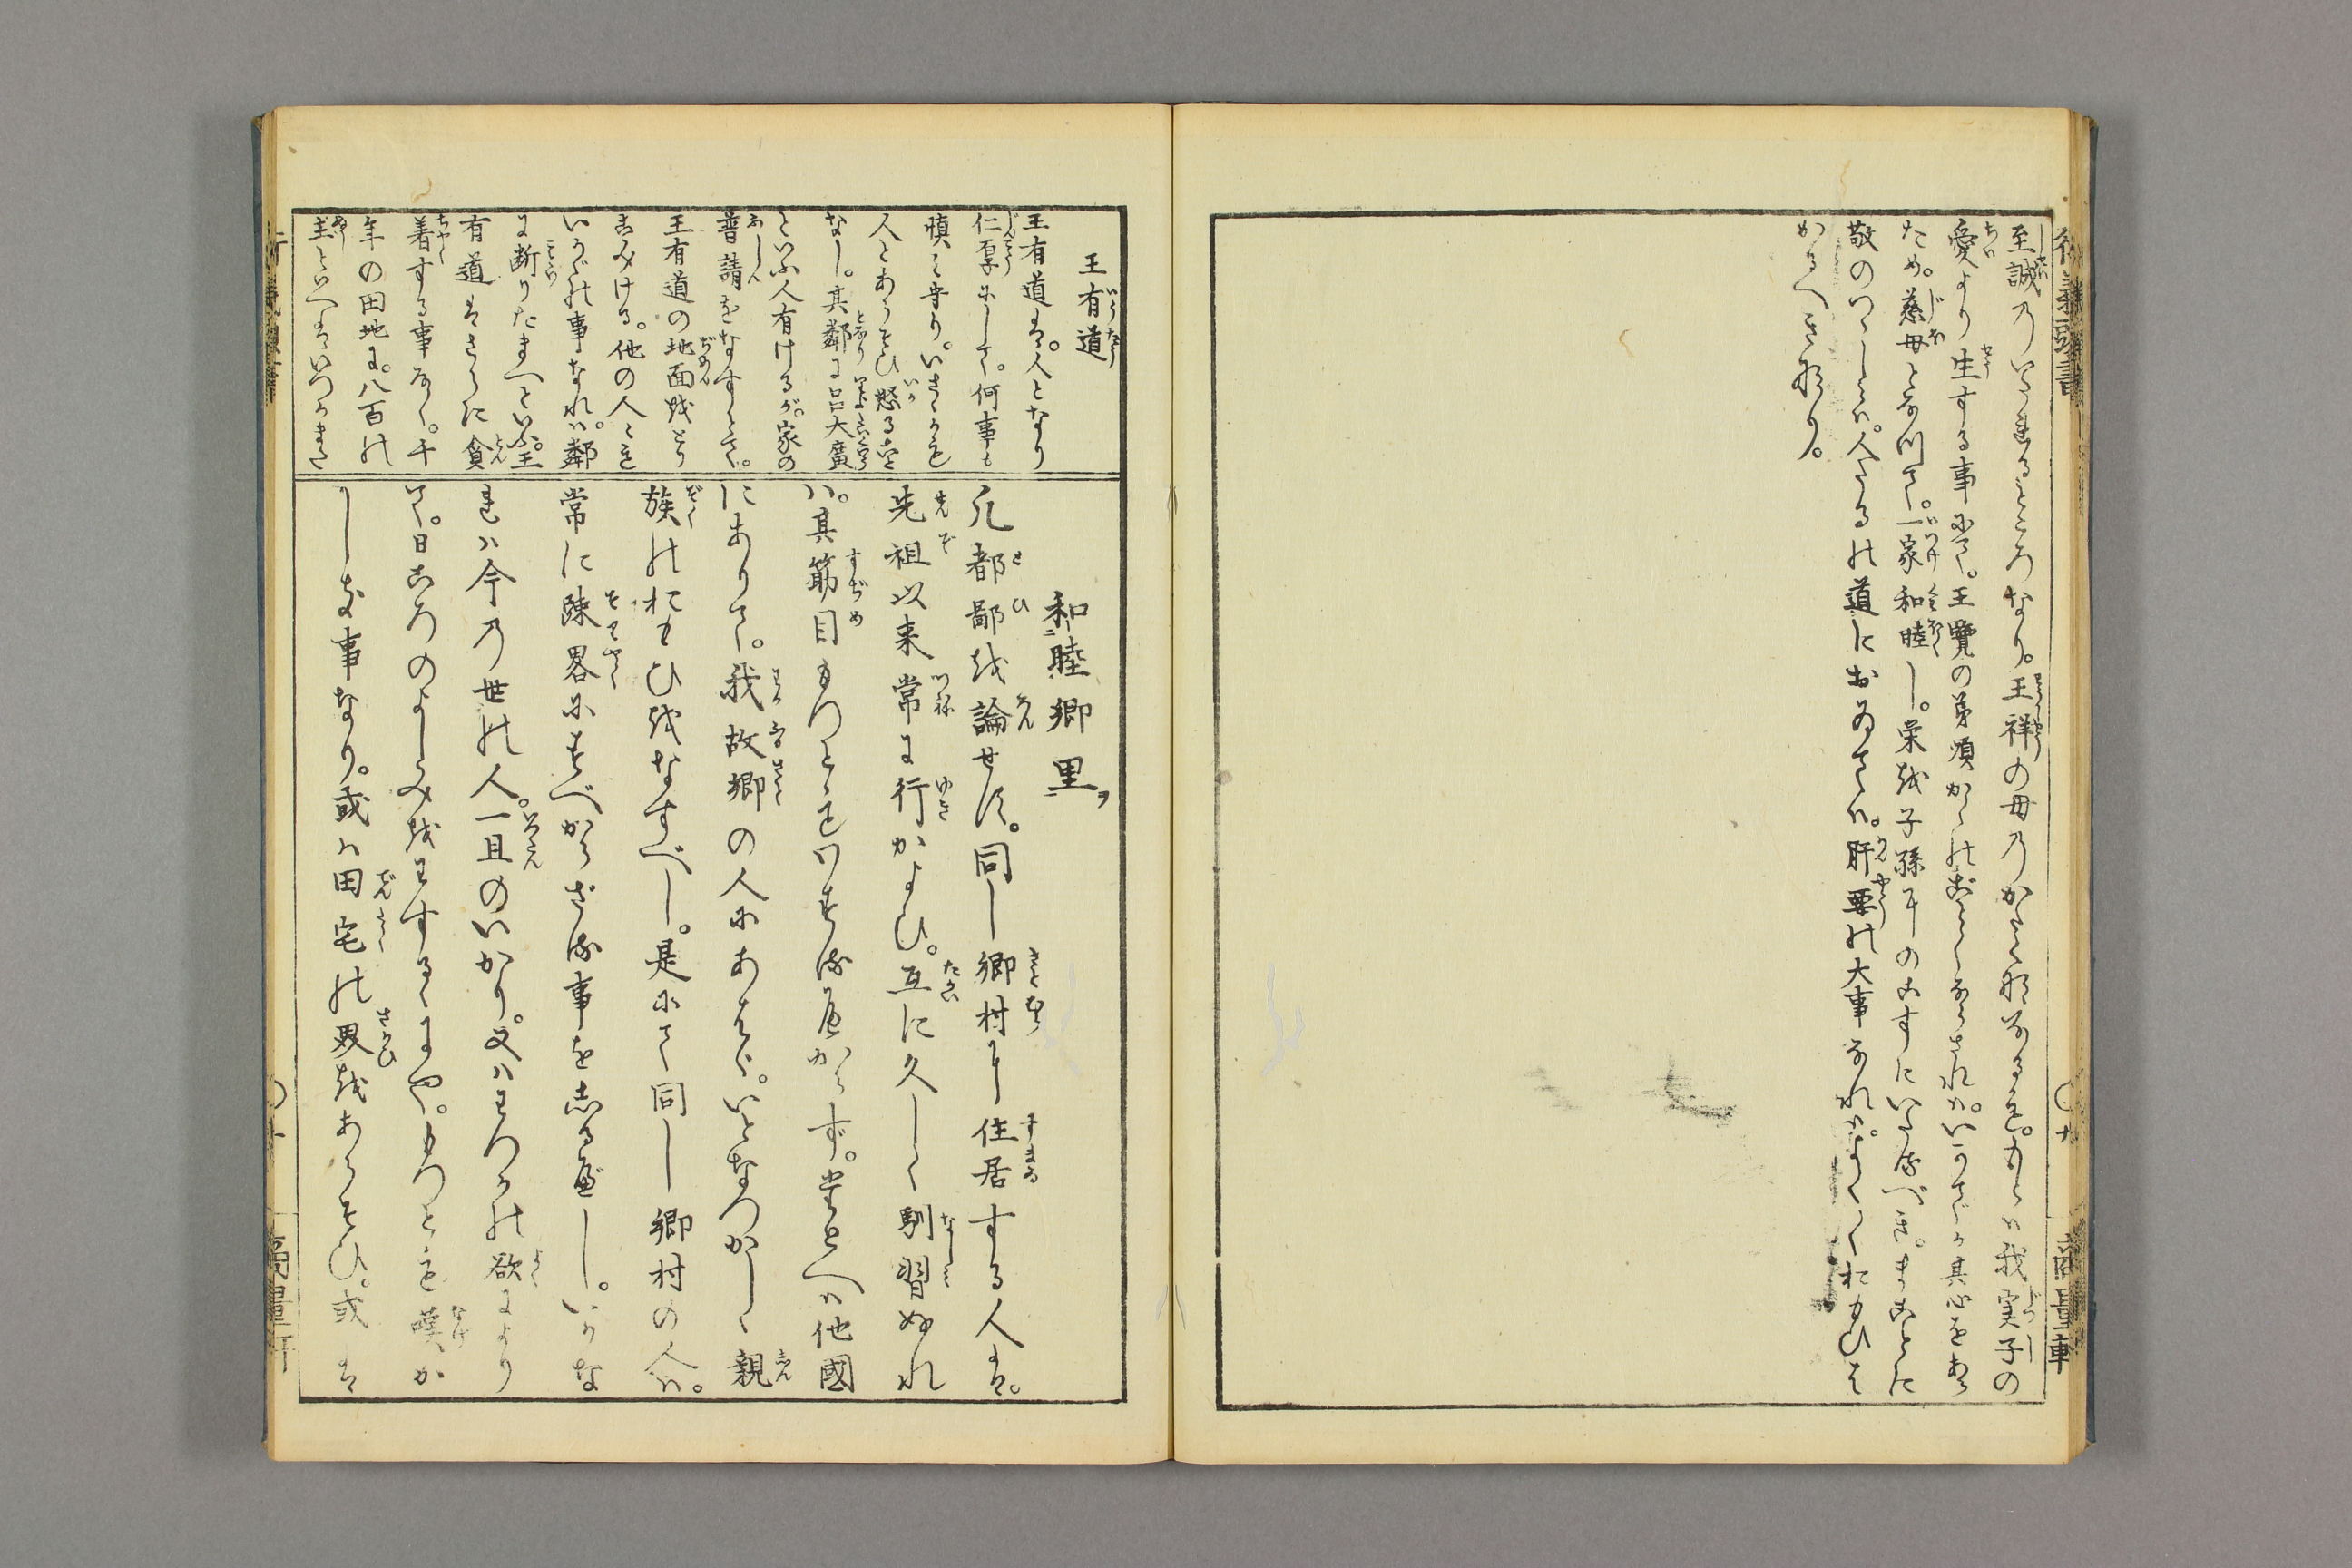 至誠のいたるところなり。王祥の母のかたくななるも。もとは我実子の
愛より生する事にて。王覽の弟順かくのごとくなされは。いかでか其心をあら
ため。慈母となつて。一家和睦し。栄を子孫にのこすにいたるべき。まことに
敬のいたりは。人たるの道におゐては。肝要の大事なれは。よく〳〵おもひは
かるへき事なり。
王有道
王有道は。人となり
仁厚にして。何事も
慎み守り。いさゝかも
人とあらそひ怒る事
なし。其鄰に呂大廣
といふ人有けるが。家の
普請をなすとて。
王有道の地面をとり
こみける。他の人も
いかゞの事なれは。鄰
に断りたまへといふ。王
有道はさらに貪
着する事なく。千
年の田地に。八百の
主といへは。いつかまた
和睦郷里
凡都鄙を論せす。同し郷村に住居する人は。
先祖以来常に行かよひ。互に久しく馴習ぬれ
は。其筋目もつともわするべからず。たとへは他國
にありて。我故郷の人にあへは。いとなつかしく親
族のおもひをなすべし。是にて同し郷村の人は。
常に踈畧にすべからざる事をしるべし。いかな
れは今の世の人。一旦のいかり。又はわつかの欲により
て。日ころのよしみをわするゝにや。もつとも嘆か
しき事なり。或は田宅の界をあらそひ。或は